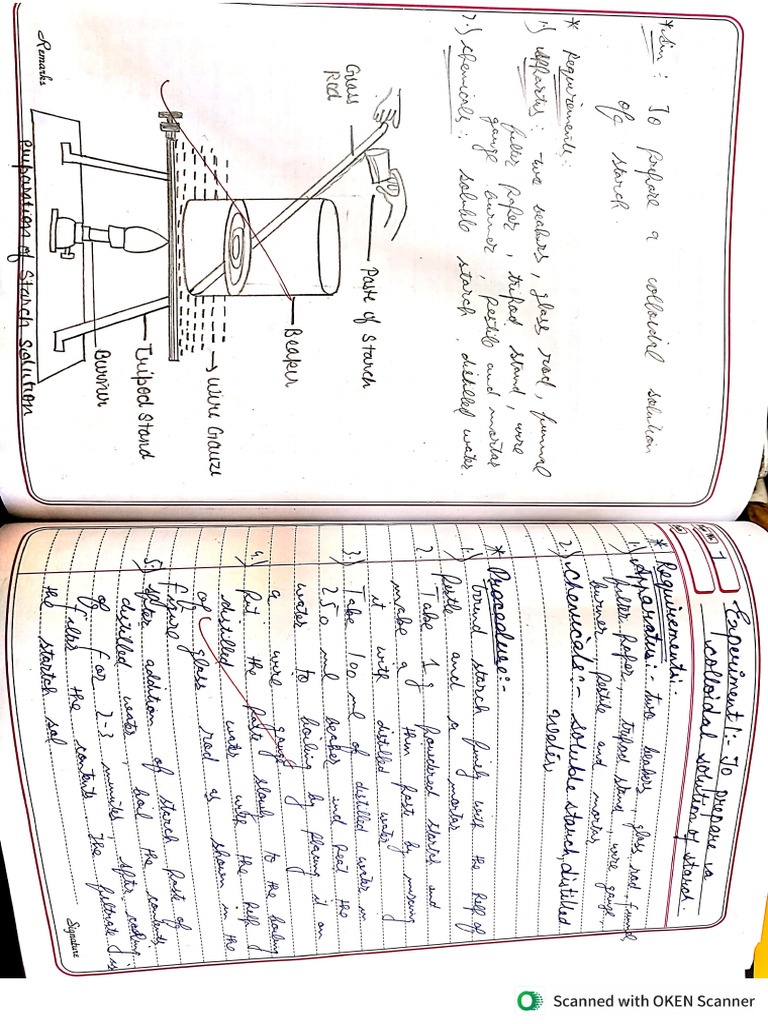 *Aim: To prepare a colloidal solution
of starch.
* Requirements:
1.) Appartus: two beakers, glass rod, funnel
filter paper, tripod stand, wire
gauge burner, pestle and mortar
2.) chemicals: soluble starch, distilled water.
Glass
Rod
Paste of Starch
Beaker
Wire Gauze
Tripod Stand
Burner
Preparation of Starch Solution
Remarks
1
Experiment 1:- To prepare a
colloidal solution of starch.
* Requirements:-
1.) Apparatus:- two beakers, glass rod, funnel,
filter paper, tripod stand, wire gauge,
burner, pestle and mortar
2.) chemicals:- soluble starch, distilled
water
* Procedure:-
1.) Grind starch finely with the help of
pestle and a mortar
2. Take 1 g powdered starch and
make a thin paste by mixing
it with distilled water
3.) Take 100 ml of distilled water in
250 ml beaker and heat the
water to boiling by placing it on
a wire gauge
4.) Put the paste slowly to the boiling
distilled water with the help
of glass rod as shown in the
figure
5.) After addition of starch paste of
distilled water boil the contents
of for 2-3 minutes, after cooling
filter the contents. The filtrate is
the startch sol.
Signature
Scanned with OKEN Scanner